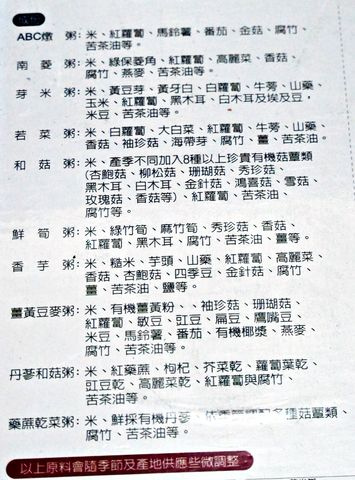 成份
ABC燉粥:米、紅蘿蔔、馬鈴薯、番茄、金菇、腐竹、
苦茶油等。
南菱粥:米、綠保菱角、紅蘿蔔、高麗菜、香菇、
腐竹、燕麥、苦茶油等。
芽米粥:米、黃豆芽、黃牙白、白蘿蔔、牛蒡、山藥、
玉米、紅蘿蔔、黑木耳、白木耳及埃及豆,
米豆、苦茶油等。
若菜粥:米、白蘿蔔、大白菜、紅蘿蔔、牛蒡、山藥、
香菇、袖珍菇、海帶芽、腐竹、薑、苦茶油。
和菇粥:米、產季不同加入8種以上珍貴有機菇蕈類
(杏鮑菇、柳松菇、珊瑚菇、秀珍菇、
黑木耳、白木耳、金針菇、鴻喜菇、雪菇、
玫瑰菇、香菇等)、紅蘿蔔、苦茶油、
腐竹等。
鮮筍粥:米、綠竹筍、麻竹筍、秀珍菇、香菇、
紅蘿蔔、黑木耳、腐竹、苦茶油、薑等。
香芋粥:米、糙米、芋頭、山藥、紅蘿蔔、高麗菜
香菇、杏鮑菇、四季豆、金針菇、腐竹、
薑、苦茶油、鹽等。
薑黃豆麥粥:米、有機薑黃粉、、袖珍菇、珊瑚菇、
紅蘿蔔、敏豆、豇豆、扁豆、鷹嘴豆、
米豆、馬鈴薯、番茄、有機椰漿、燕麥、
腐竹、苦茶油等。
丹蔘和菇粥:米、紅藥蔗、枸杞、芥菜乾、蘿蔔葉乾、
豇豆乾、高麗菜乾、紅蘿蔔與腐竹、
苦茶油等。
藥蔗乾菜粥:米、鮮採有機丹蔘、種菇蕈類、
腐竹、苦茶油等。
以上原料會隨季節及產地供應些微調整